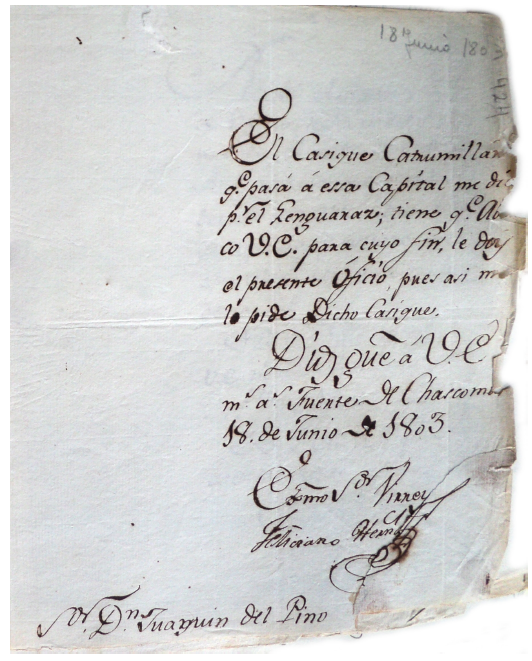 18 Junio 180
424
El Casique Catrumillán
q.e pasá á essa Capital me dic
p.r el Lenguaraz; tiene q.e
co V.E. para cuyo fin, le doy
el presente Oficio, pues asi m
lo pide Dicho Casique.
Dios gue á V.E
m.s a.s Fuerte de Chascom
18. de Junio de 1803.
Exmo S.or Virrey
Feliciano Hern
S.or D.n Juaquin del Pino